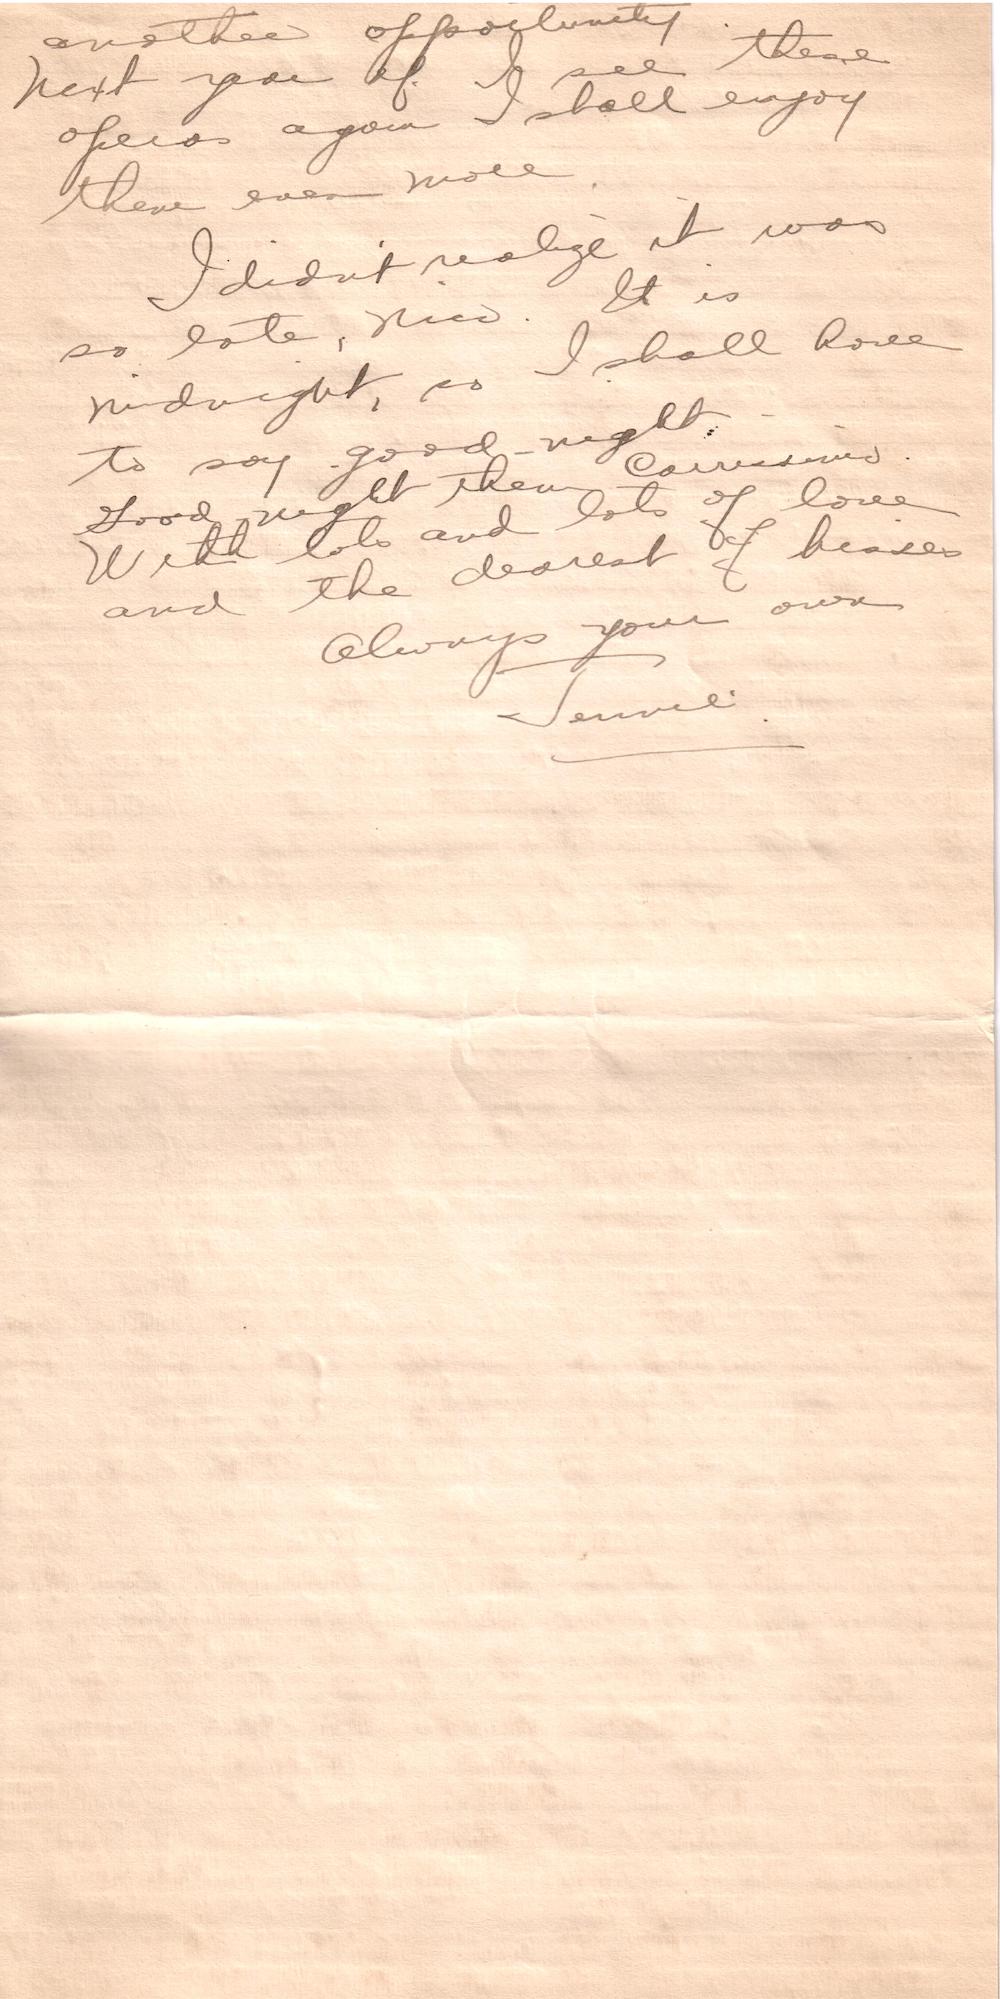 another opportunity.
Next year if I see these
operas again I shall enjoy
them even more.
I didn't realize it was
so late, Nico. It is
midnight, so I shall have
to say good-night.
Good night then Carissimo.
With lots and lots of love
and the dearest of kisses
Always your own
Jennie.